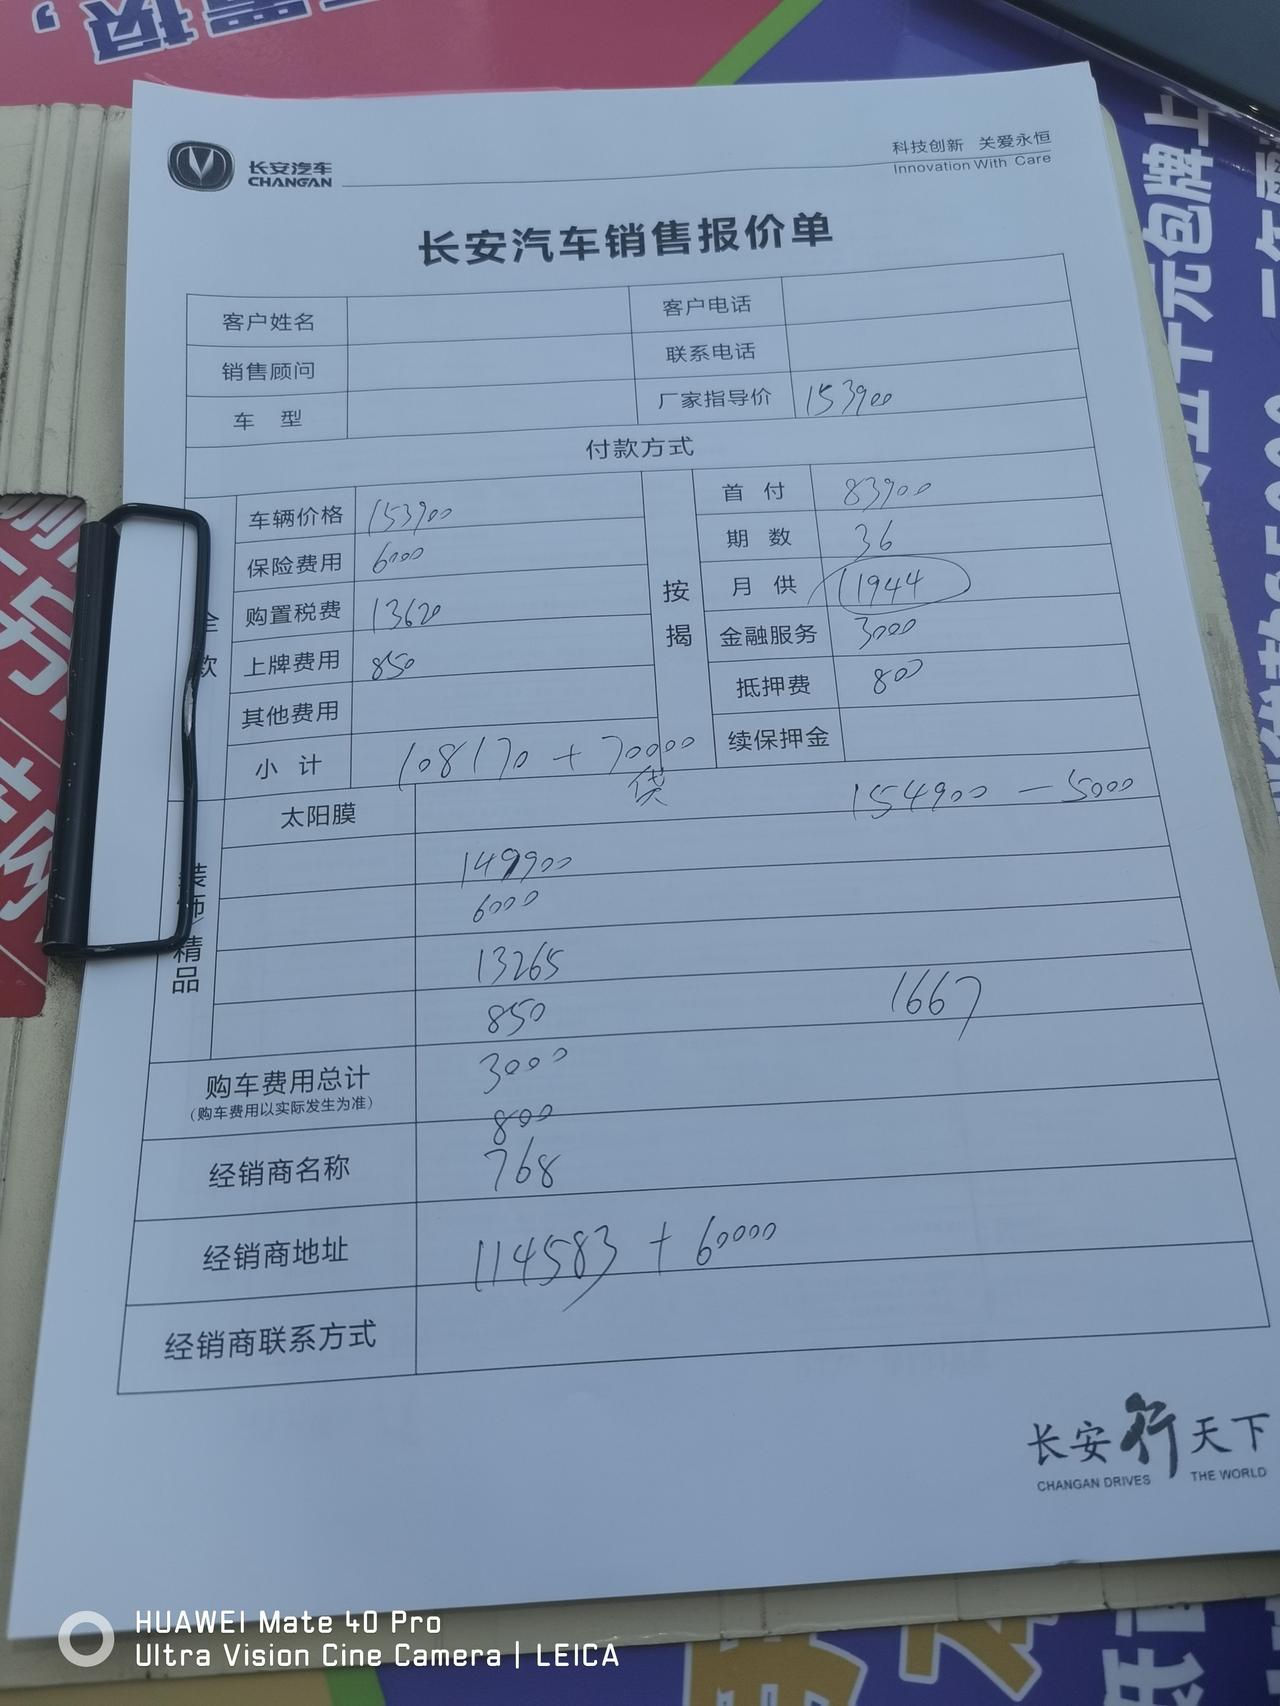 置换,
长安汽车
CHANGAN
科技创新 关爱永恒
Innovation With Care
长安汽车销售报价单
客户姓名 客户电话
销售顾问 联系电话
车 型 厂家指导价 153900
付款方式
全款 按揭
车辆价格 153900 首 付 83900
保险费用 6000 期 数 36
购置税费 13620 月 供 1944
上牌费用 850 金融服务 3000
其他费用 抵押费 800
小 计 108170 + 70000 续保押金
贷
装饰/精品
太阳膜 154900 - 5000
149900
6000
13265
850 1667
购车费用总计 3000
(购车费用以实际发生为准)
800
经销商名称 768
经销商地址 114583 + 60000
经销商联系方式
长安行天下
CHANGAN DRIVES THE WORLD
元包牌上
HUAWEI Mate 40 Pro
Ultra Vision Cine Camera | LEICA